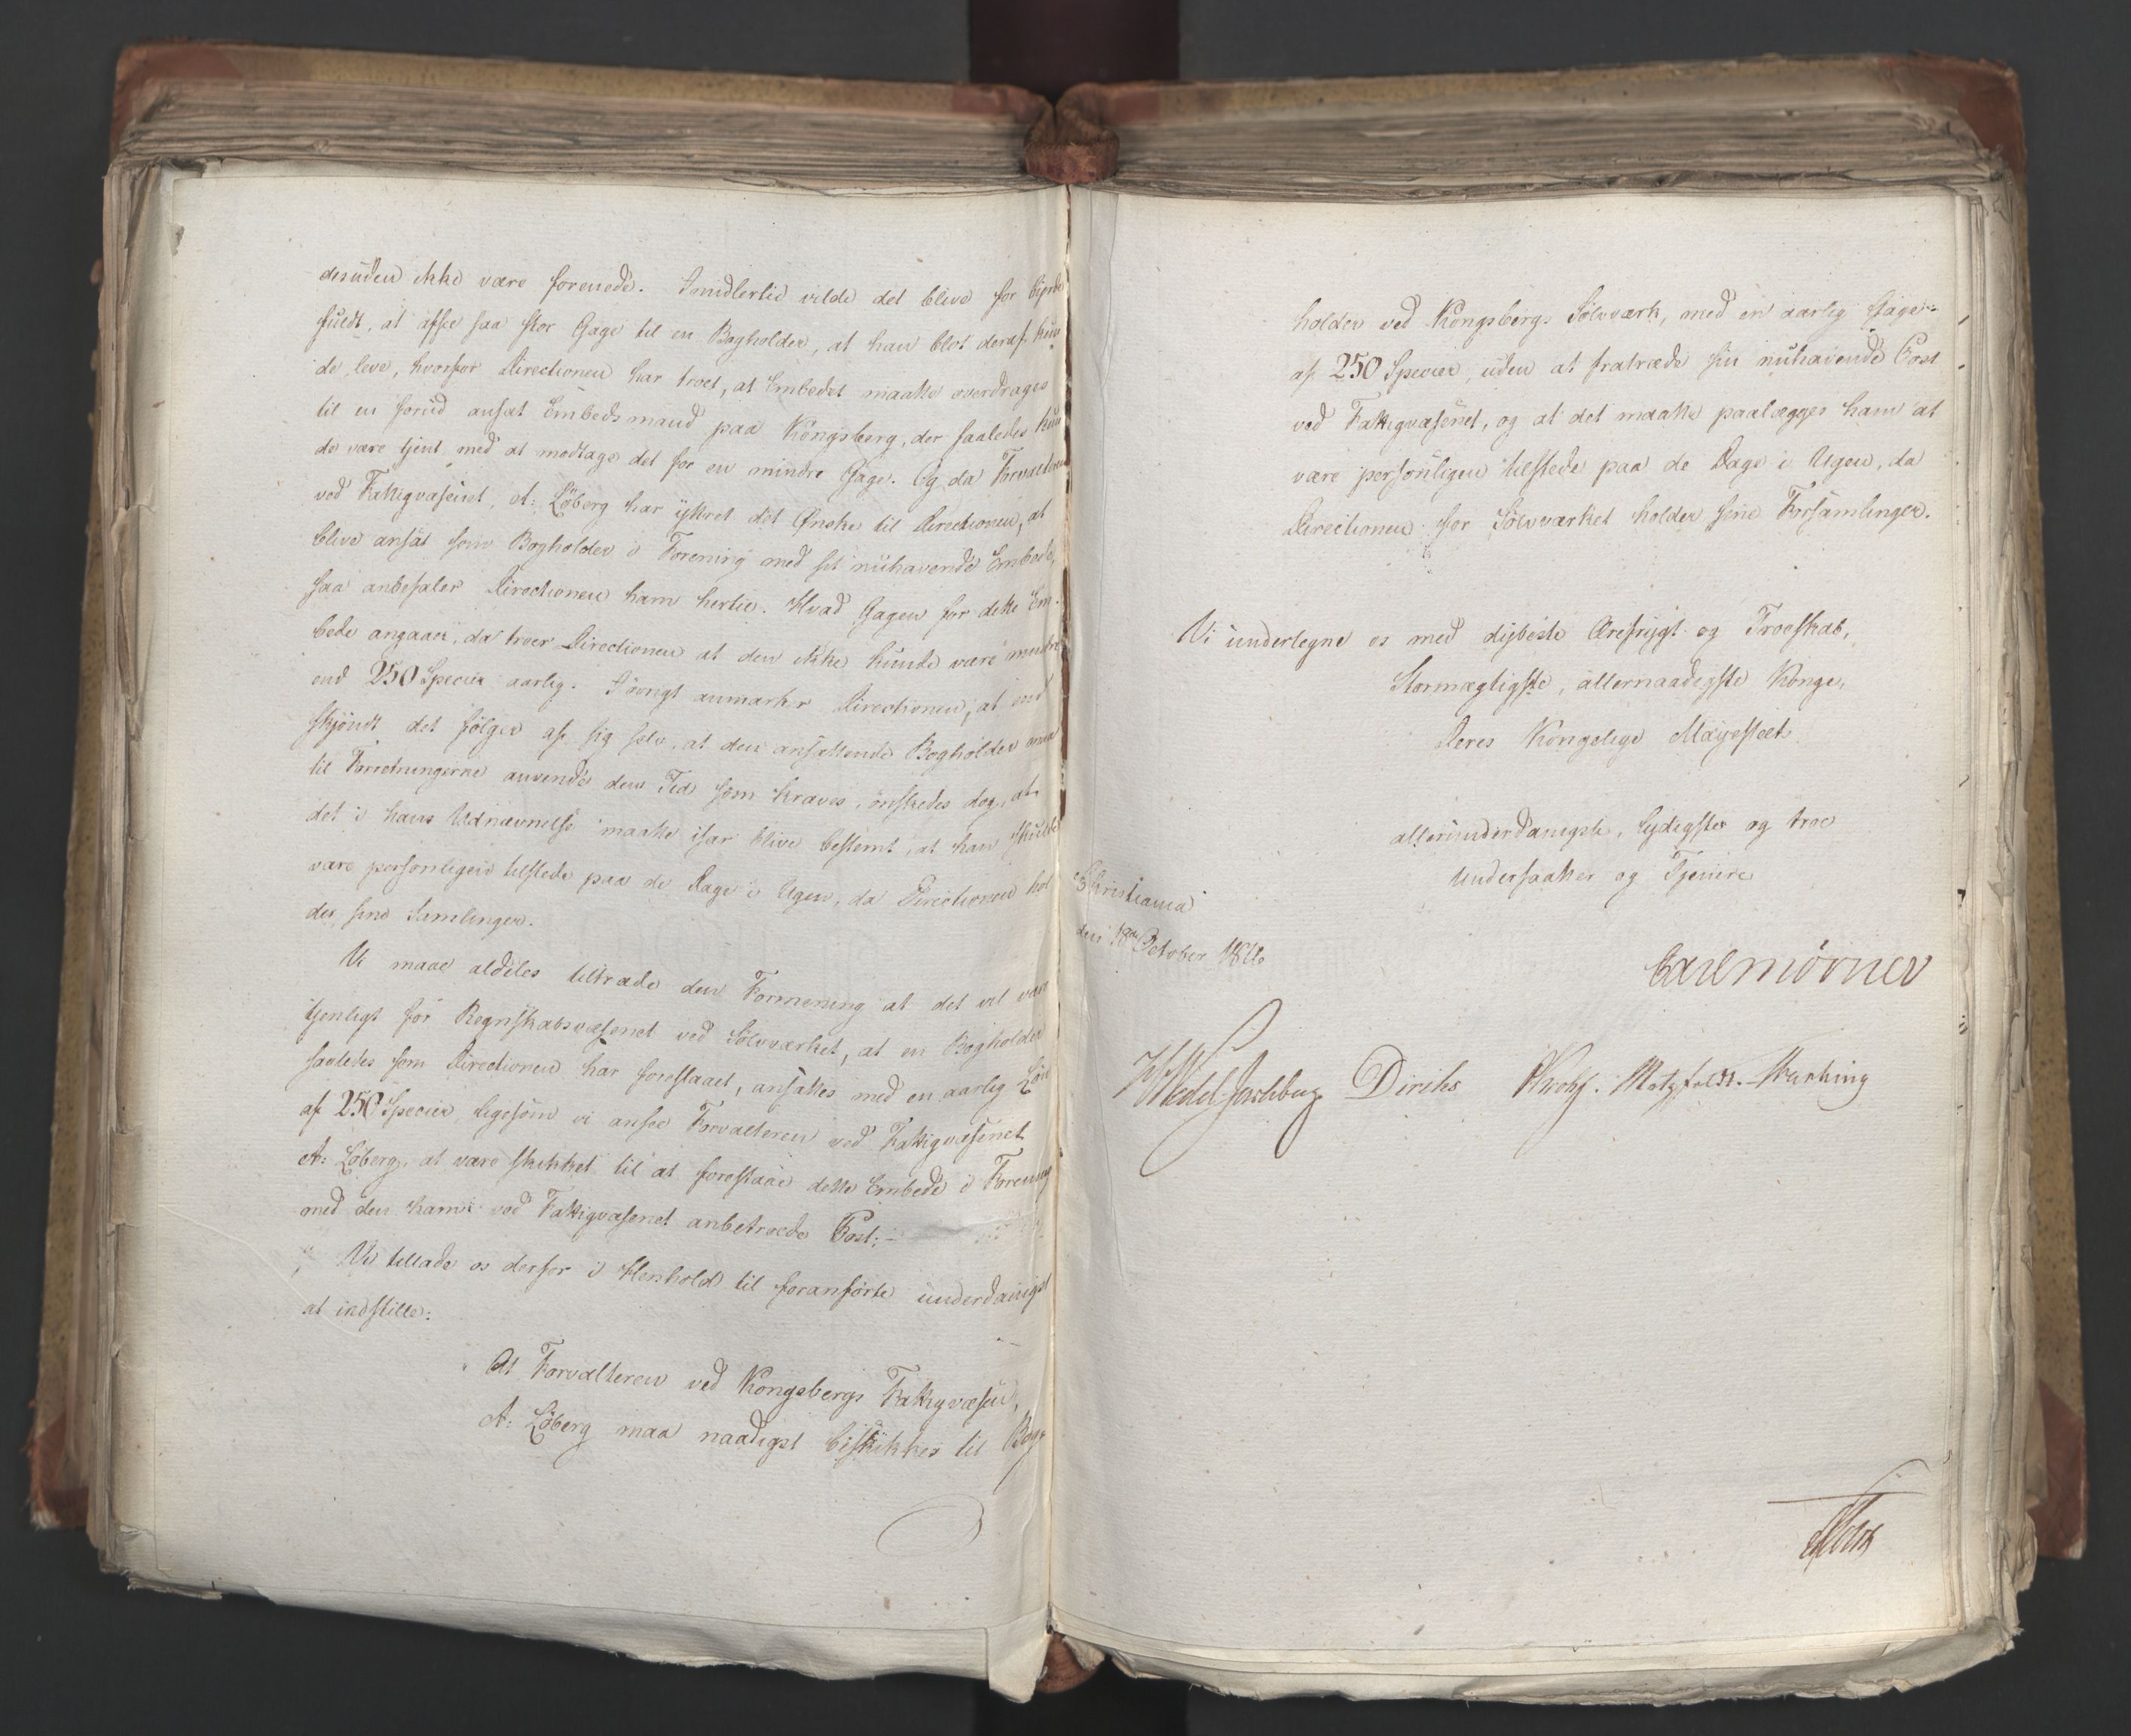 desuden ikke være forenede. Imidlertid vilde det blive for byrde
fuldt, at afsee saa stor Gage til en Bogholder, at han blot deraf kun
de leve, hvorfor Directionen har troet, at Embedet maatte overdrages
til en forud ansat Embedsmand paa Kongsberg, der saaledes kun
de være tjent med at modtage det for en mindre Gage. Og da Forvalteren
ved Fattigvæsenet, A: Löberg har yttret det Ønske til Directionen, at
blive ansat som Bogholder i Forening med sit nuhavende Embede,
saa anbefaler Directionen ham hertil. Hvad Gagen for dette Em-
bede angaaer, da troer Directionen at den ikke kunde være mindre
end 250 Specier aarlig. Iövrigt anmærker Directionen, at end
skjöndt det fölger af sig selv, at den ansættende Bogholder maa
til Forretningerne anvende den Tid som kræves, önskedes dog, at
det i hans Udnævnelse maatte især blive bestemt, at han skulde
være personligen tilstede paa de Dage i Ugen, da Directionen hol
der sine Samlinger.
Vi maae aldeles tiltræde den Formening at det vil være
tjenligt for Regnskabsvæsenet ved Sölvværket, at en Bogholder
saaledes som Directionen har foreslaaet, ansættes med en aarlig Lön
af 250 Specier, ligesom vi ansee Forvalteren ved Fattigvæsenet
A: Löberg, at være skikket til at forestaae dette Embede i Forening
med den ham ved Fattigvæsenet anbetroede Post;-
Vi tillade os derfor i Henhold til foranförte underdanigst
at indstille:
At Forvalteren ved Kongsbergs Fattigvæsen,
A: Löberg maa naadigst beskikkes til Bog-
holder ved Kongsbergs Sölvværk, med en aarlig Gage
af 250 Specier, uden at fratræde sin nuhavende Post
ved Fattigvæsenet, og at det maatte paalægges ham at
være personligen tilstede paa de Dage i Ugen, da
Directionen for Sölvværket holder sine Forsamlinger.
Vi underlegne os med dybeste Ærefrygt og Troeskab,
Stormægtigste, allernaadigste Konge,
Deres Kongelige Mayestæts
allerunderdanigste, lydigste og troe
Undersaatter og Tjenere
Christiania
den 18de October 1816
Carl Mörner
HWedel Jarlsberg Diriks Krohg. Motzfeldt.